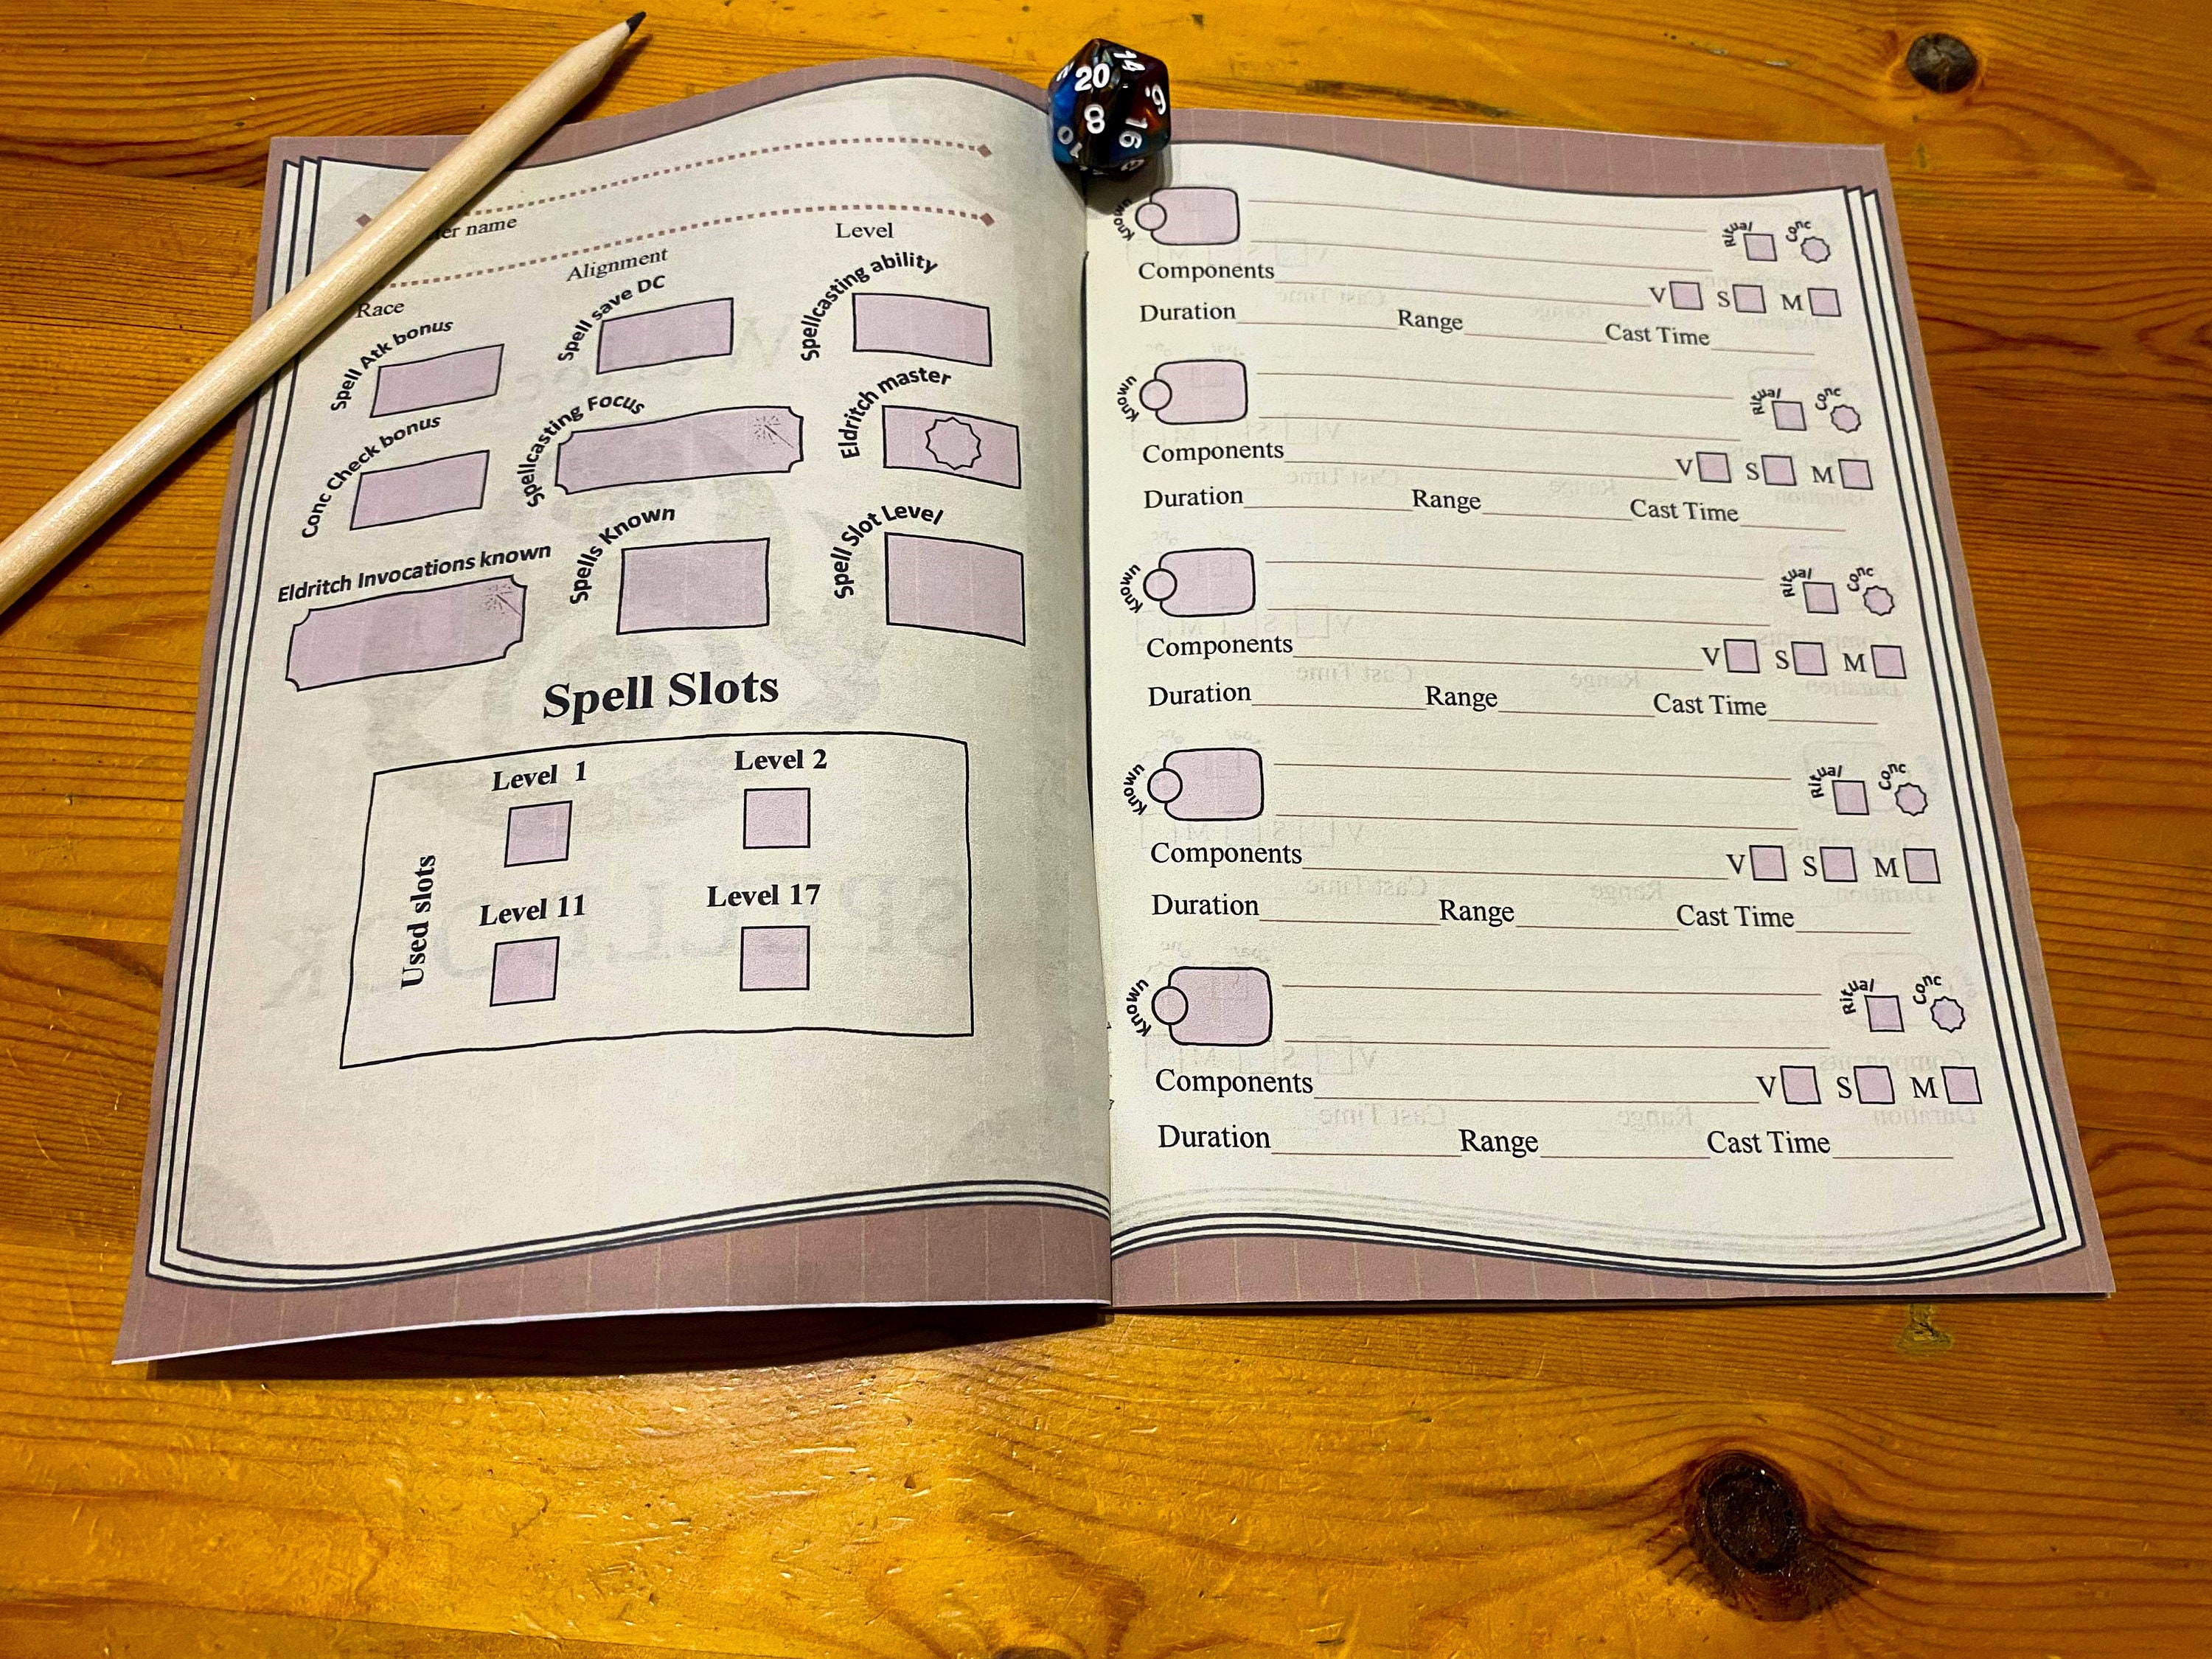 name
Level
Alignment
Race
Spell Atk bonus
Spell save DC
Spellcasting ability
Conc Check bonus
Spellcasting Focus
Eldritch master
Eldritch Invocations known
Spells Known
Spell Slot Level
Spell Slots
Used slots
Level 1
Level 2
Level 11
Level 17
20
14
8
16
10
Known
Ritual
Conc
Components V S M
Duration Range Cast Time
Known
Ritual
Conc
Components V S M
Duration Range Cast Time
Known
Ritual
Conc
Components V S M
Duration Range Cast Time
Known
Ritual
Conc
Components V S M
Duration Range Cast Time
Known
Ritual
Conc
Components V S M
Duration Range Cast Time